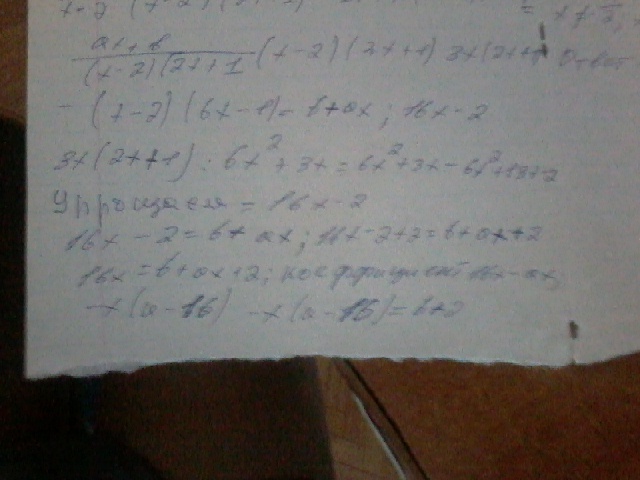 ax + b
(x-2)(2x+1 (x-2)(2x+1) 3x(2x+1 Ответ
- (x-2)(6x-1)= b+ax; 16x-2
3x(2x+1): 6x² + 3x = 6x² + 3x - 6x² + 13x-2
= 16x-2
16x - 2 = b + ax; 16x-2+2 = b+ax+2
16x = b+ax+2; коэффициент 16x-ax;
-x(a-16) -x(a-16) = b+2